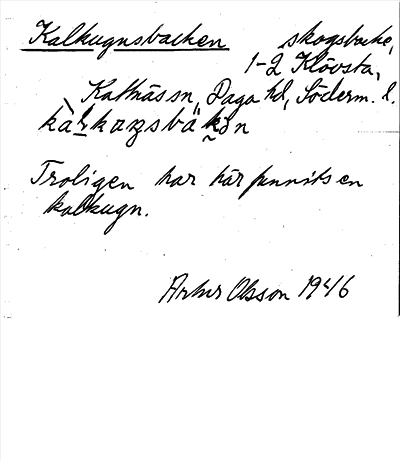 Kalkugnsbacken skogsbacke,
1-2 Klövsta,
Kattnäs sn, Daga hd, Söderm. l.
Troligen har här funnits en
kalkugn.
Artur Olsson 1946